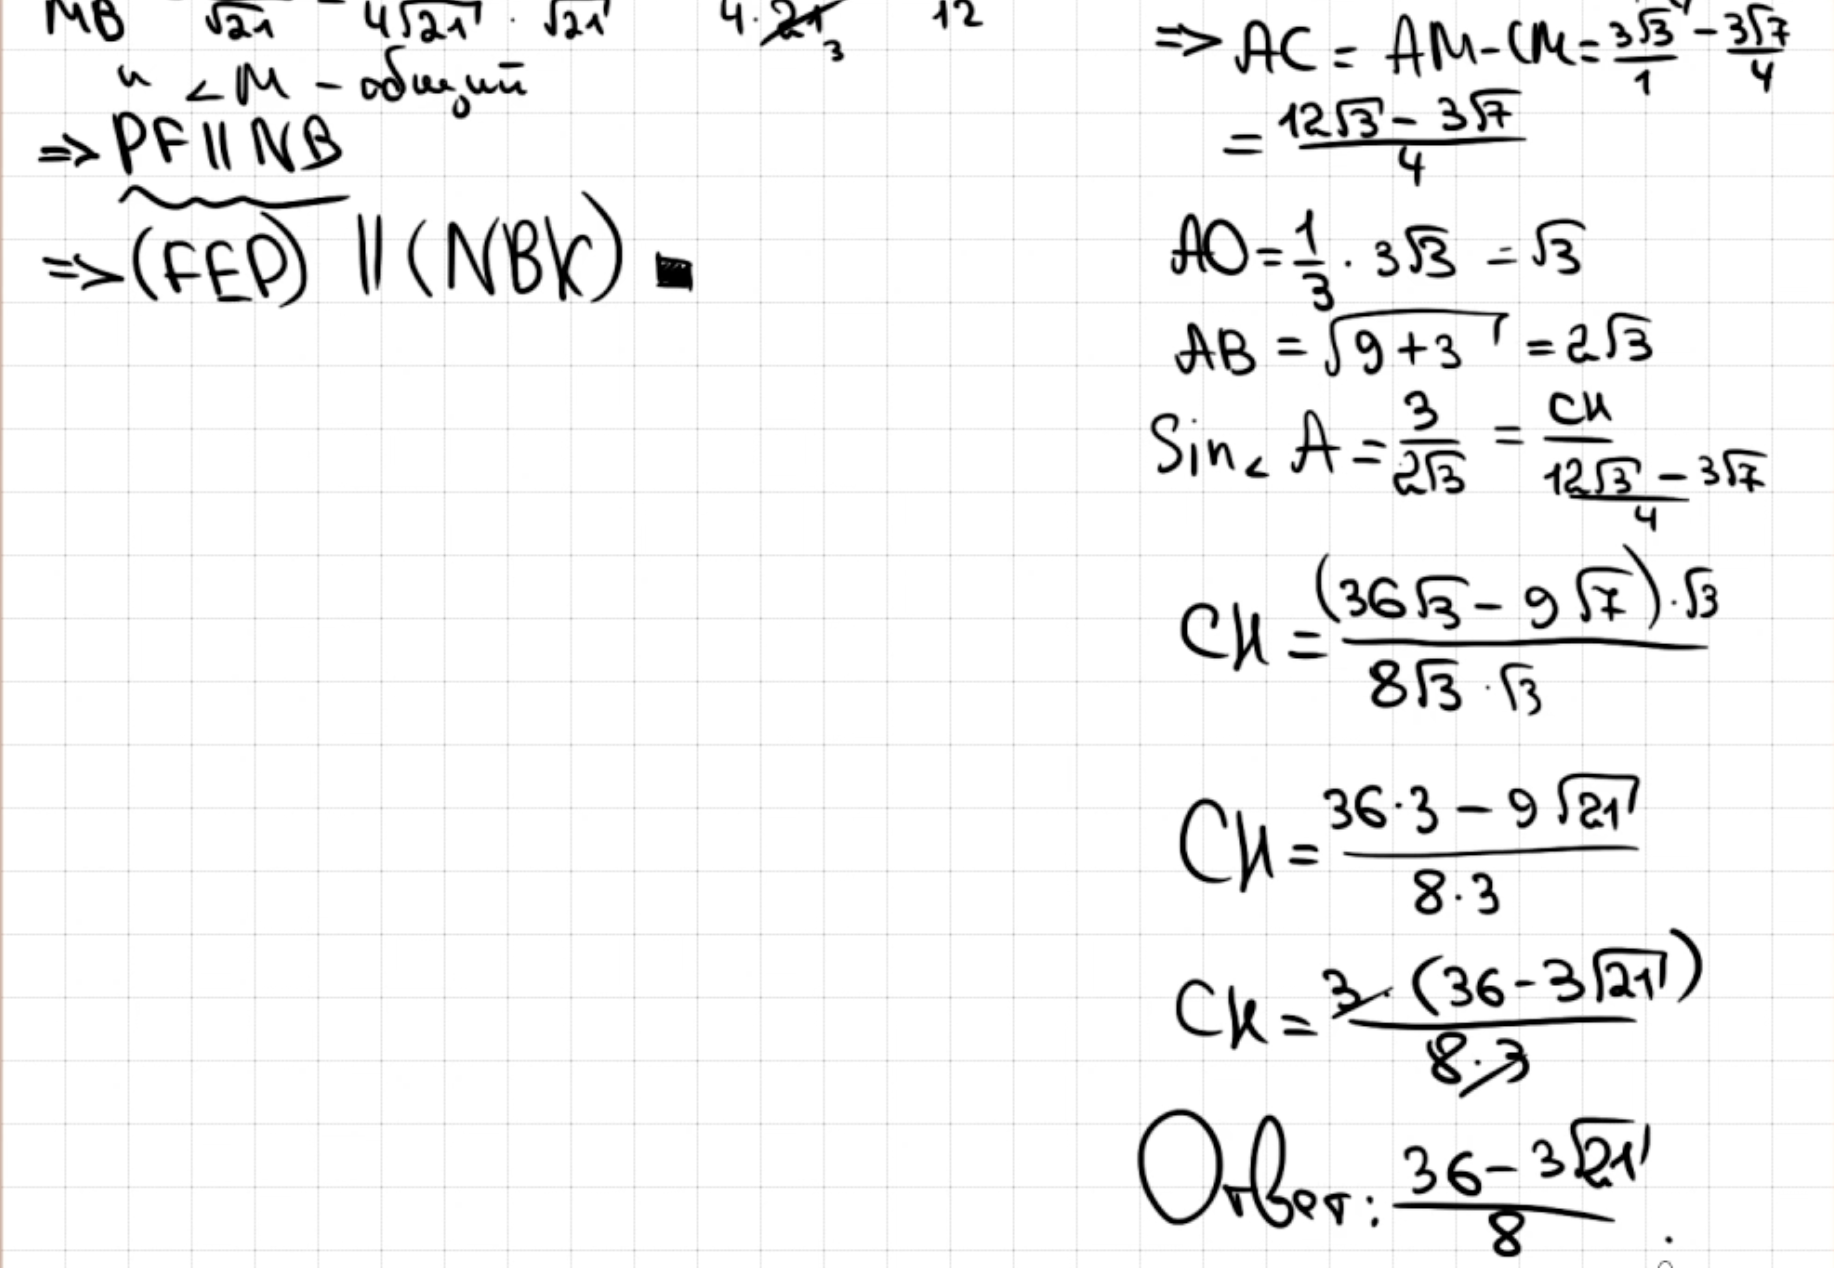 MB √21 4√21 · √21 4·21 3 12
и ∠M - общий
=> PF || NB
=> (FEP) || (NBK) ■
=> AC = AM - CM = 3√3/1 - 3√7/4
= (12√3 - 3√7)/4
AO = 1/3 · 3√3 = √3
AB = √(9+3) = 2√3
Sin∠A = 3/(2√3) = CH/((12√3 - 3√7)/4)
CH = (36√3 - 9√7)·√3/(8√3·√3)
CH = (36·3 - 9√21)/(8·3)
CH = 3·(36 - 3√21)/(8·3)
Ответ: (36 - 3√21)/8.